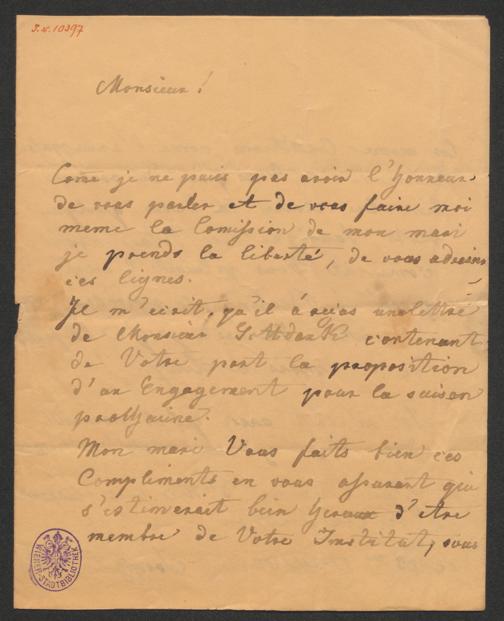 I.N. 10397
Monsieur!
Come je ne puis pas avoir l'honneur
de vous parler et de vous faire moi
meme la Comission de mon mari
je prends la liberté, de vous adresser
ces lignes.
Il m'ecrit, qu'il á reçus une lettre
de Monsieur contenant
de Votre part la proposition
d'un Engagement pour la saison
prochaine.
Mon mari Vous faits bien ces
Compliments en vous assurant qui
s'estimerait bien d'etre
membre de Votre Institut, sous
WIENER STADTBIBLIOTHEK